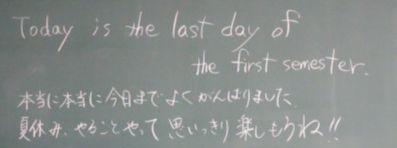 Today is the last day of
the first semester.
本当に本当に今日までよくがんばりました
夏休み、やることやって思いっきり楽しもうね!!